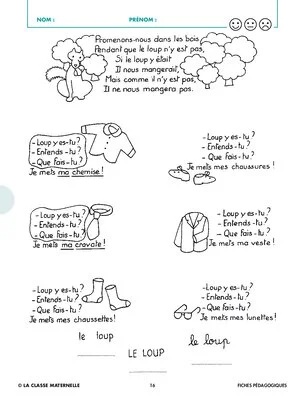 NOM : PRÉNOM :
Promenons-nous dans les bois
Pendant que le loup n'y est pas,
Si le loup y était
Il nous mangerait,
Mais comme il n'y est pas,
Il ne nous mangera pas.
- Loup y es-tu ?
- Entends-tu ?
- Que fais-tu ?
Je mets ma chemise !
- Loup y es-tu ?
- Entends-tu ?
- Que fais-tu ?
Je mets mes chaussures !
- Loup y es-tu ?
- Entends-tu ?
- Que fais-tu ?
Je mets ma cravate !
- Loup y es-tu ?
- Entends-tu ?
- Que fais-tu ?
Je mets ma veste !
- Loup y es-tu ?
- Entends-tu ?
- Que fais-tu ?
Je mets mes chaussettes !
- Loup y es-tu ?
- Entends-tu ?
- Que fais-tu ?
Je mets mes lunettes !
le loup
LE LOUP
le loup
© LA CLASSE MATERNELLE 16 FICHES PÉDAGOGIQUES